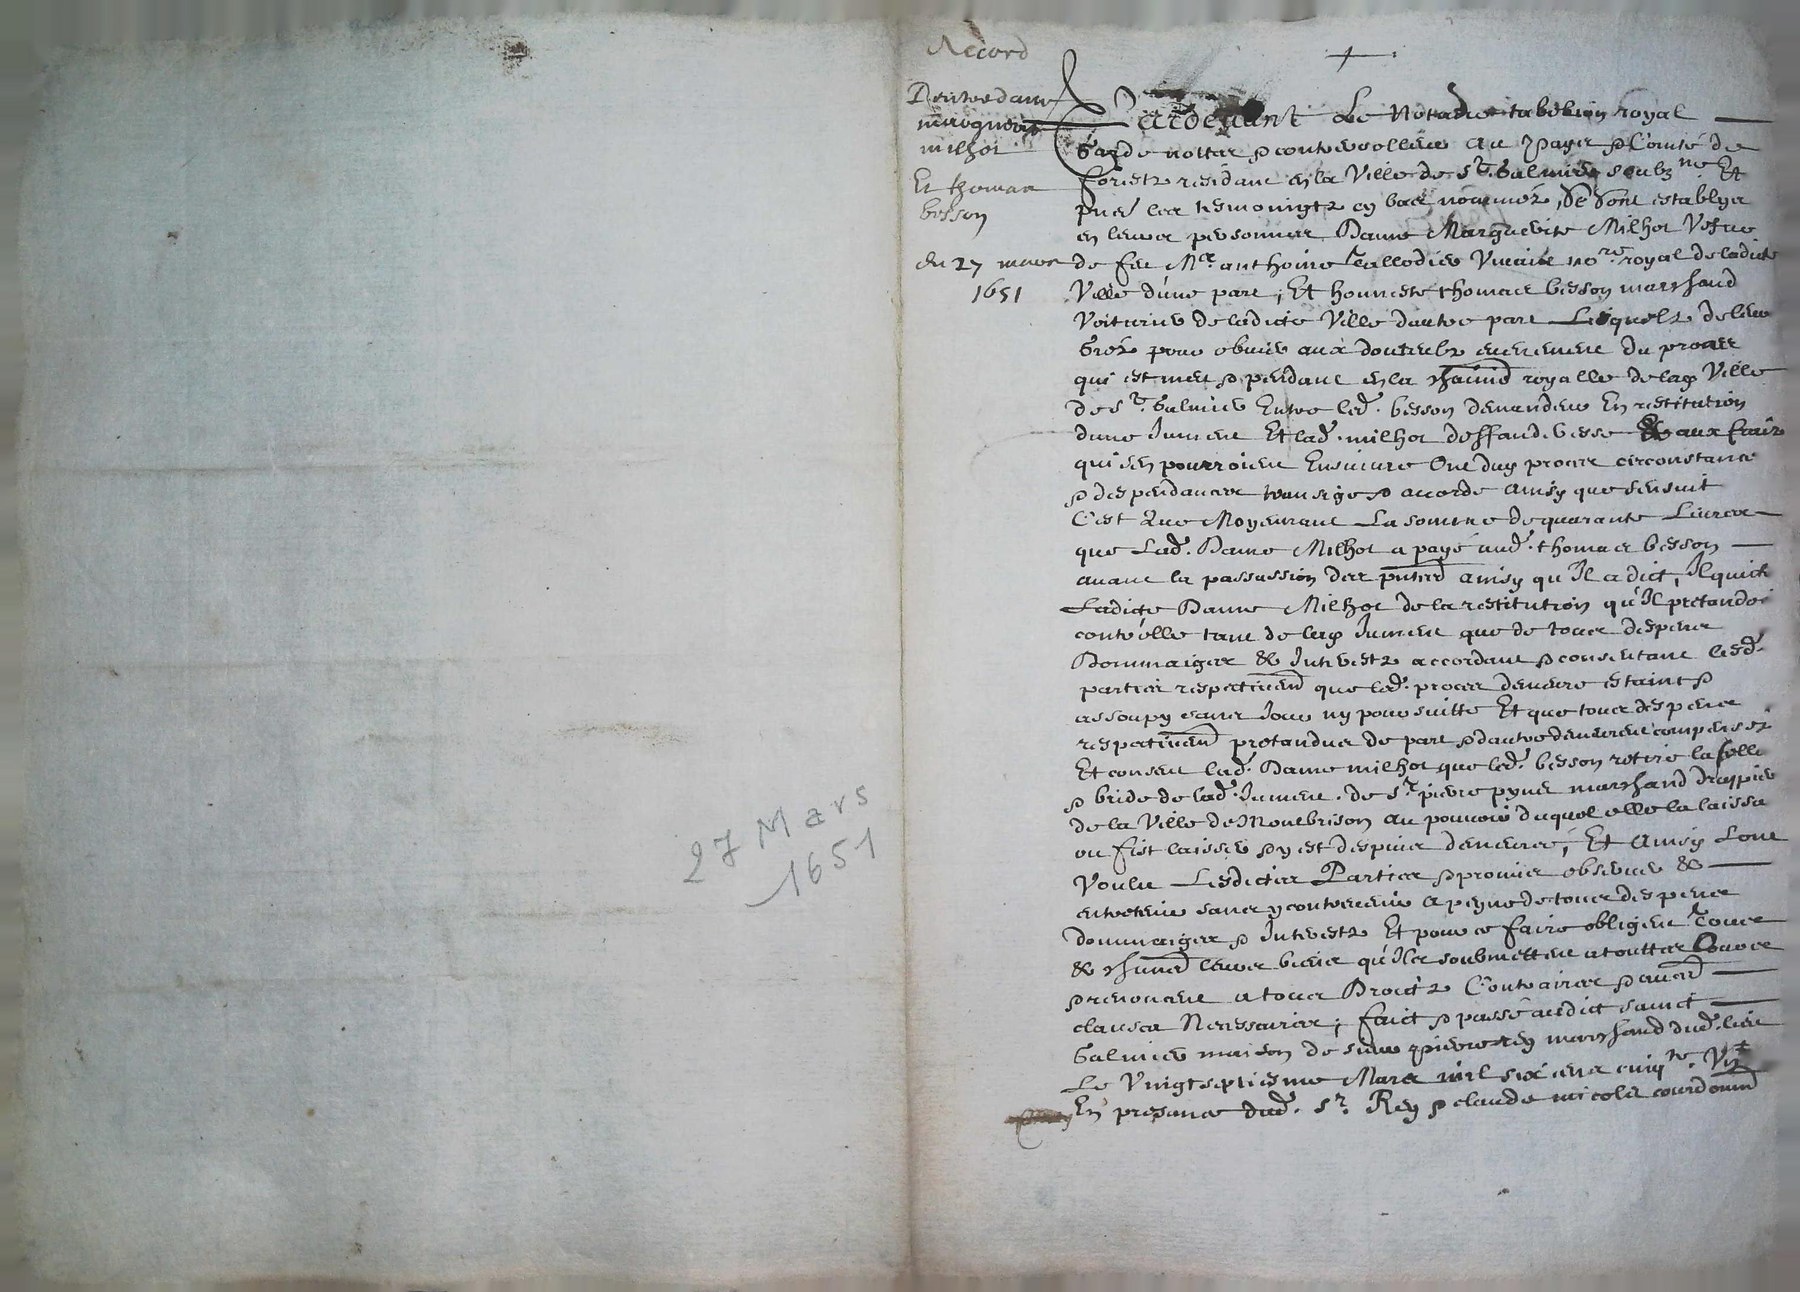 Record
Dentre dame
marguerite
milhot
Et thomas
besson
du 27 mars
1651
Pardevant Le Notaire tabellion royal
garde nottes & controolleur au Pays & Comté de
forestz residant en la Ville de St. Galmier soubzne. Et
pntz les tesmoingtz en bas nommés, Se sont establys
en leurs personnes Dame Marguerite Milhot Vefue
de feu Mre anthoine Vivant nore royal de ladicte
Ville d'une part, Et honneste thomas besson marchand
Voiturier de ladicte Ville dautre part Lesquelz de leur
Grés pour obuier aux doubteulx euenement du proces
qui est meu & pendant en la royalle de lad Ville
de St. Galmier Entre led. besson demandeur En restitution
dune Jument Et lad. milhot deffanderesse & aux fraitz
qui sen pourroient Ensuiure Ont dud proces circonstance
& despendances transigé & accordé ainsy que sensuit
C'est Que Moyennant La somme de quarante Liures
que Lad. Dame Milhot a payé aud. thomas besson
auant la passassion des pntes ainsy qu'Il a dict, Il quicte
Ladicte Dame Milhot de la restitution qu'Il pretandoit
contr'elle tant de lad Jument que de tous despens
Dommaiges & Interestz accordant & consentant lesd.
parties respectiuemt que led. proces demeure estaint &
assoupy sans Jour ny poursuitte Et que tous despens
respectiuemt pretandus de part & dautre demeurent compensez
Et consent lad. Dame milhot que led. besson retire la selle
& bride de lad. Jument de Sr. pierre pynet marchand drappier
de la Ville de Montbrison au pouuoir duquel elle la laissa
ou fist laisser & y est despuis demeuré, Et Ainsy L'ont
Voulu Lesdictes Parties & promis obseruer &
entretenir sans y contreuenir a peyne de tous despens
dommaiges & Interestz Et pour ce faire obligent Tous
& leurs biens qu'Ils soubmettent a touttes Cours
& renoncent a tous Droictz Contraires & auec
clauses Necessaires; faict & passé audict sainct
Galmier maison de sieur pierre rey marchand dud. lieu
Le Vingtseptiesme Mars mil six cens cinqte. Vn
En presance dud. Sr. Rey & claude nicolas courdonnr
27 Mars
1651